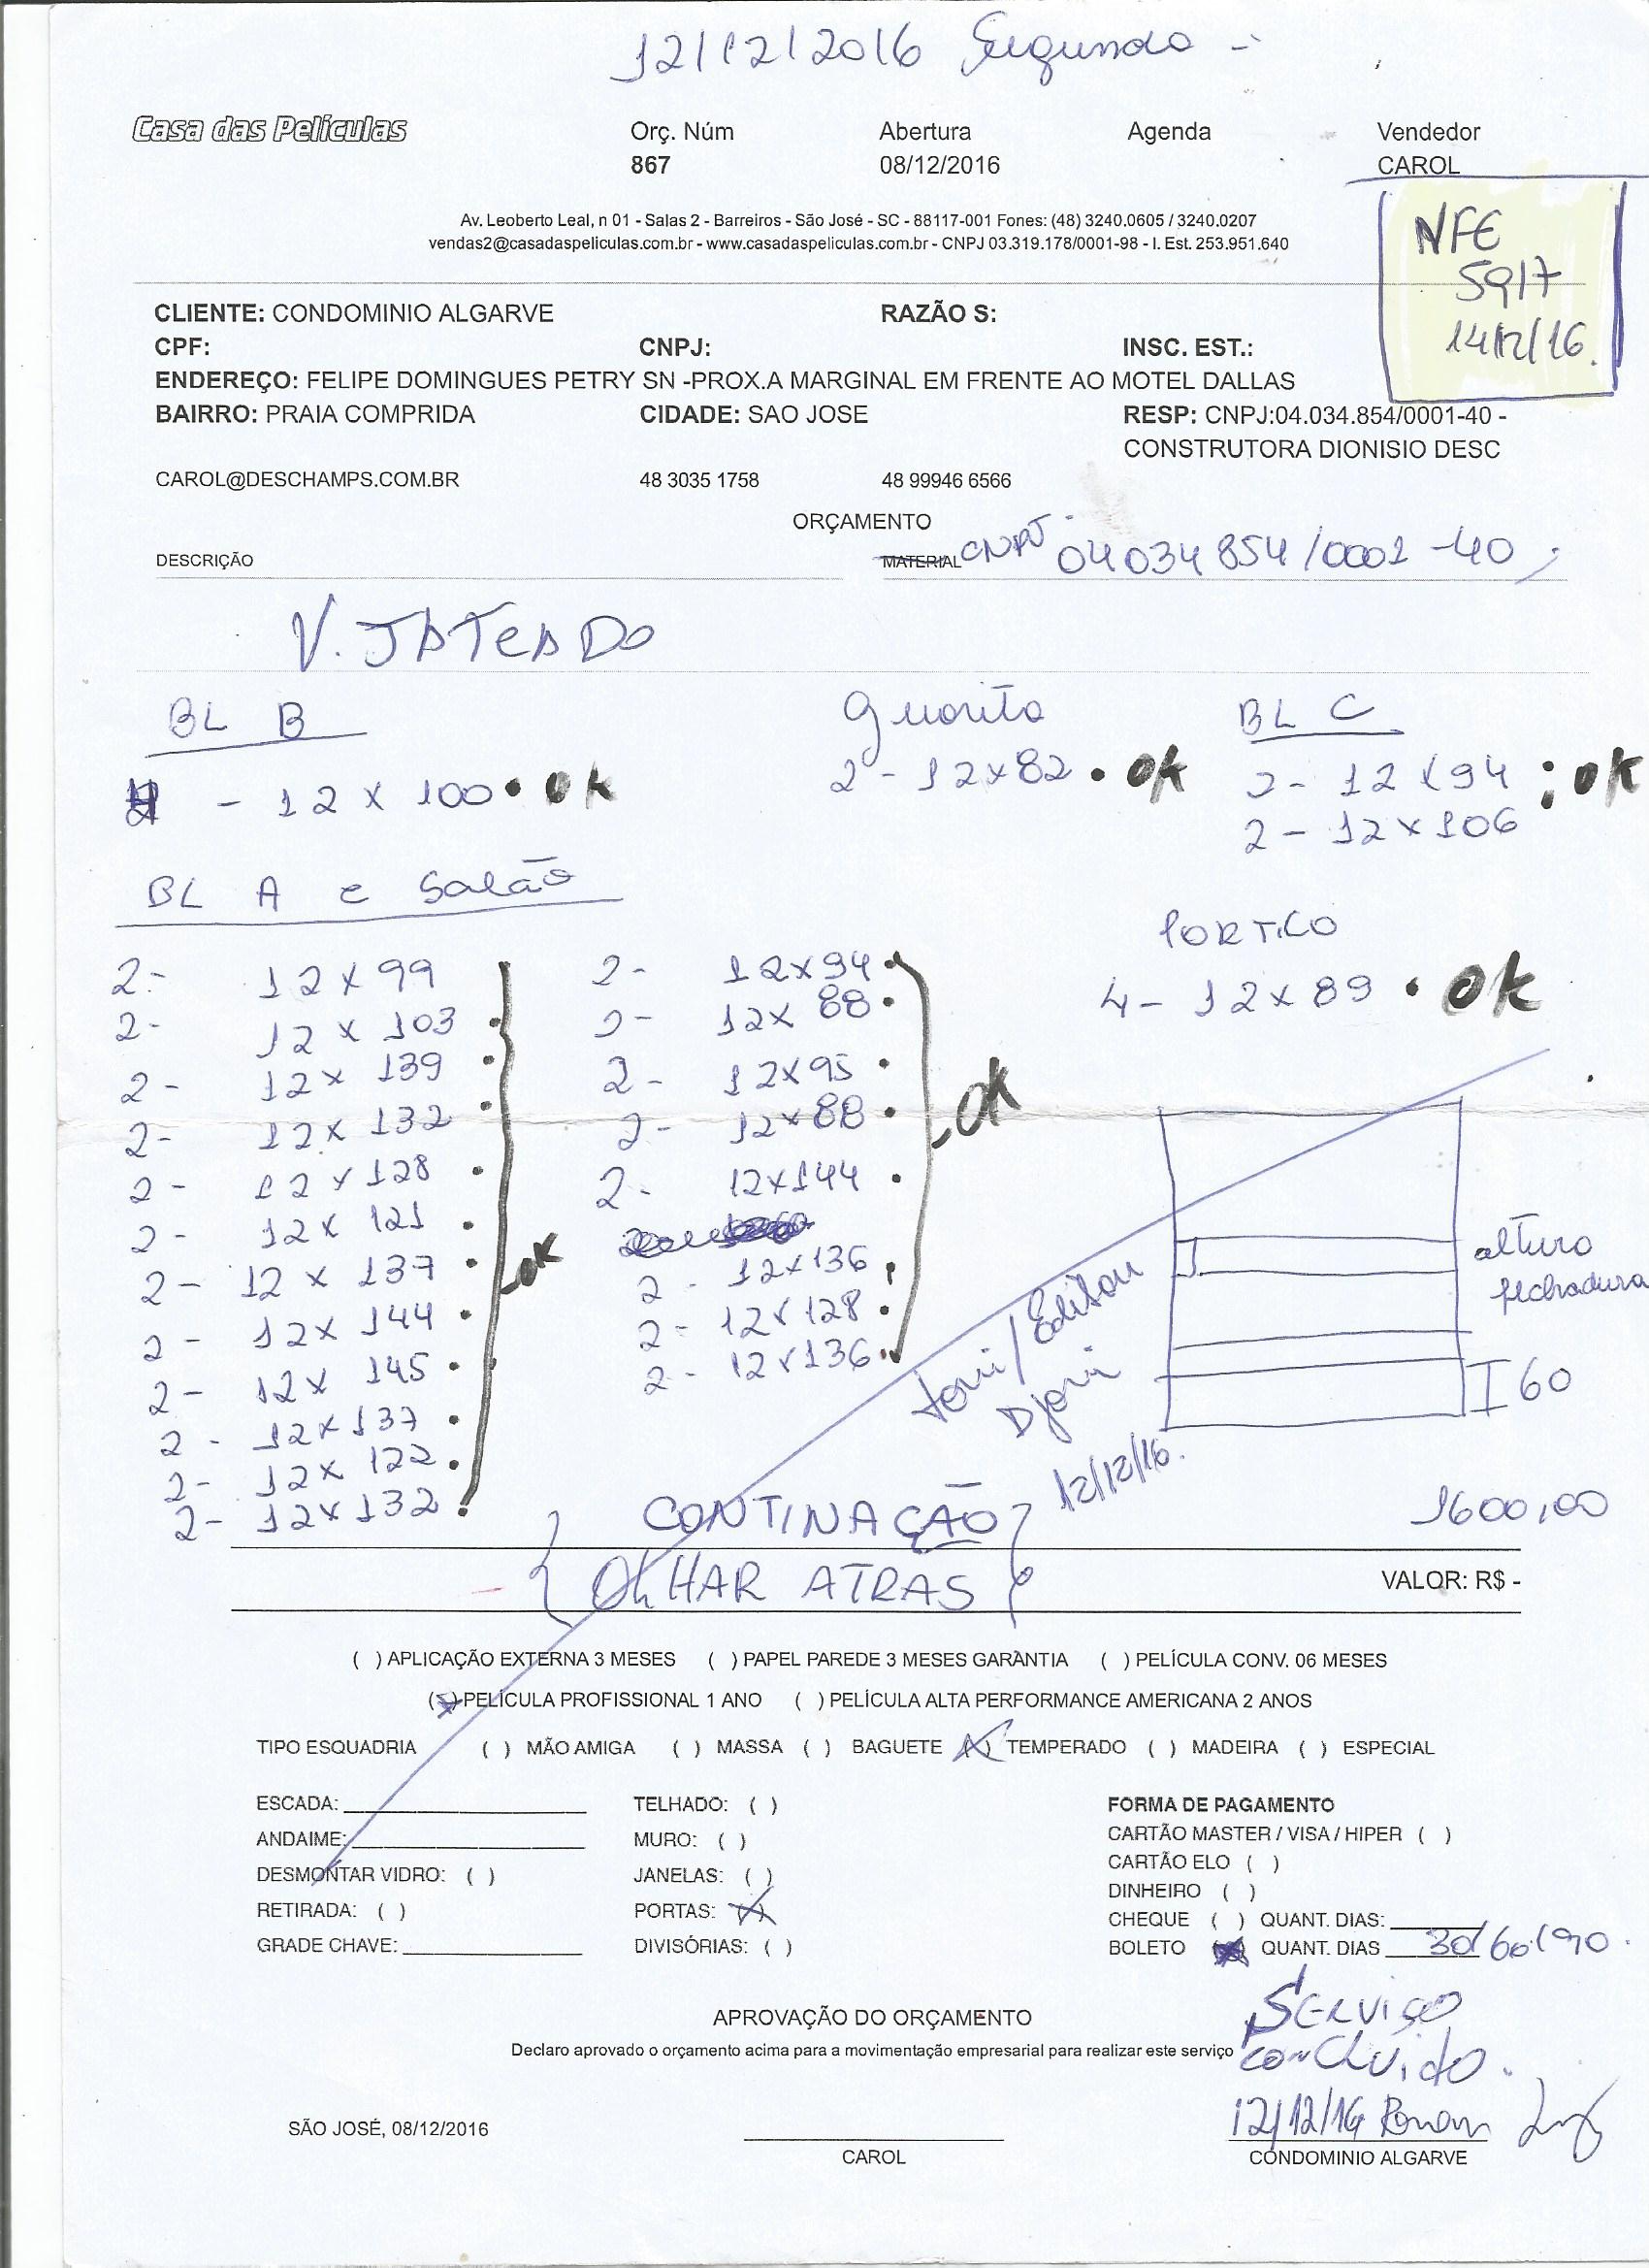 12/12/2016 Segunda -
Casa das Películas
Orç. Núm Abertura Agenda Vendedor
867 08/12/2016 CAROL
Av. Leoberto Leal, n 01 - Salas 2 - Barreiros - São José - SC - 88117-001 Fones: (48) 3240.0605 / 3240.0207
vendas2@casadaspeliculas.com.br - www.casadaspeliculas.com.br - CNPJ 03.319.178/0001-98 - I. Est. 253.951.640
NFE
5917
14/12/16.
CLIENTE: CONDOMINIO ALGARVE RAZÃO S:
CPF: CNPJ: INSC. EST.:
ENDEREÇO: FELIPE DOMINGUES PETRY SN -PROX.A MARGINAL EM FRENTE AO MOTEL DALLAS
BAIRRO: PRAIA COMPRIDA CIDADE: SAO JOSE RESP: CNPJ:04.034.854/0001-40 -
CONSTRUTORA DIONISIO DESC
CAROL@DESCHAMPS.COM.BR 48 3035 1758 48 99946 6566
ORÇAMENTO
DESCRIÇÃO MATERIAL CNPJ 04034854/0001-40
V. JATEADO
BL B guarita BL C
- 12 x 100 • ok 2 - 12x82 • ok 2 - 12 x 94 : ok
2 - 12 x 106
BL A e Salão
PORTICO
4 - 12 x 89 • ok
2- 12 x 99 2- 12x94 •
2- 12 x 103 • 2- 12x 88 •
2- 12 x 139 • 2- 12x95 •
2- 12 x 132 • 2- 12x88 • - OK
2- 12 x 128 • 2- 12x144 •
2- 12 x 121 •
2- 12 x 137 • - OK 2- 12x136
2- 12 x 144 • 2- 12x128 •
2- 12 x 145 • 2- 12x136 •
2- 12 x 137 •
2- 12 x 122 •
2- 12 x 132 •
altura
fechadura
60
/ Edilson
Djoni
12/12/16.
CONTINAÇÃO 1600,00
OLHAR ATRAS VALOR: R$ -
( ) APLICAÇÃO EXTERNA 3 MESES ( ) PAPEL PAREDE 3 MESES GARANTIA ( ) PELÍCULA CONV. 06 MESES
(X) PELÍCULA PROFISSIONAL 1 ANO ( ) PELÍCULA ALTA PERFORMANCE AMERICANA 2 ANOS
TIPO ESQUADRIA ( ) MÃO AMIGA ( ) MASSA ( ) BAGUETE (X) TEMPERADO ( ) MADEIRA ( ) ESPECIAL
ESCADA: TELHADO: ( ) FORMA DE PAGAMENTO
ANDAIME: MURO: ( ) CARTÃO MASTER / VISA / HIPER ( )
DESMONTAR VIDRO: ( ) JANELAS: ( ) CARTÃO ELO ( )
RETIRADA: ( ) PORTAS: (X) DINHEIRO ( )
GRADE CHAVE: DIVISÓRIAS: ( ) CHEQUE ( ) QUANT. DIAS:
BOLETO (X) QUANT. DIAS 30/60/90.
APROVAÇÃO DO ORÇAMENTO
Declaro aprovado o orçamento acima para a movimentação empresarial para realizar este serviço
SERVIÇO
CONCLUIDO.
12/12/16
SÃO JOSÉ, 08/12/2016
CAROL CONDOMINIO ALGARVE